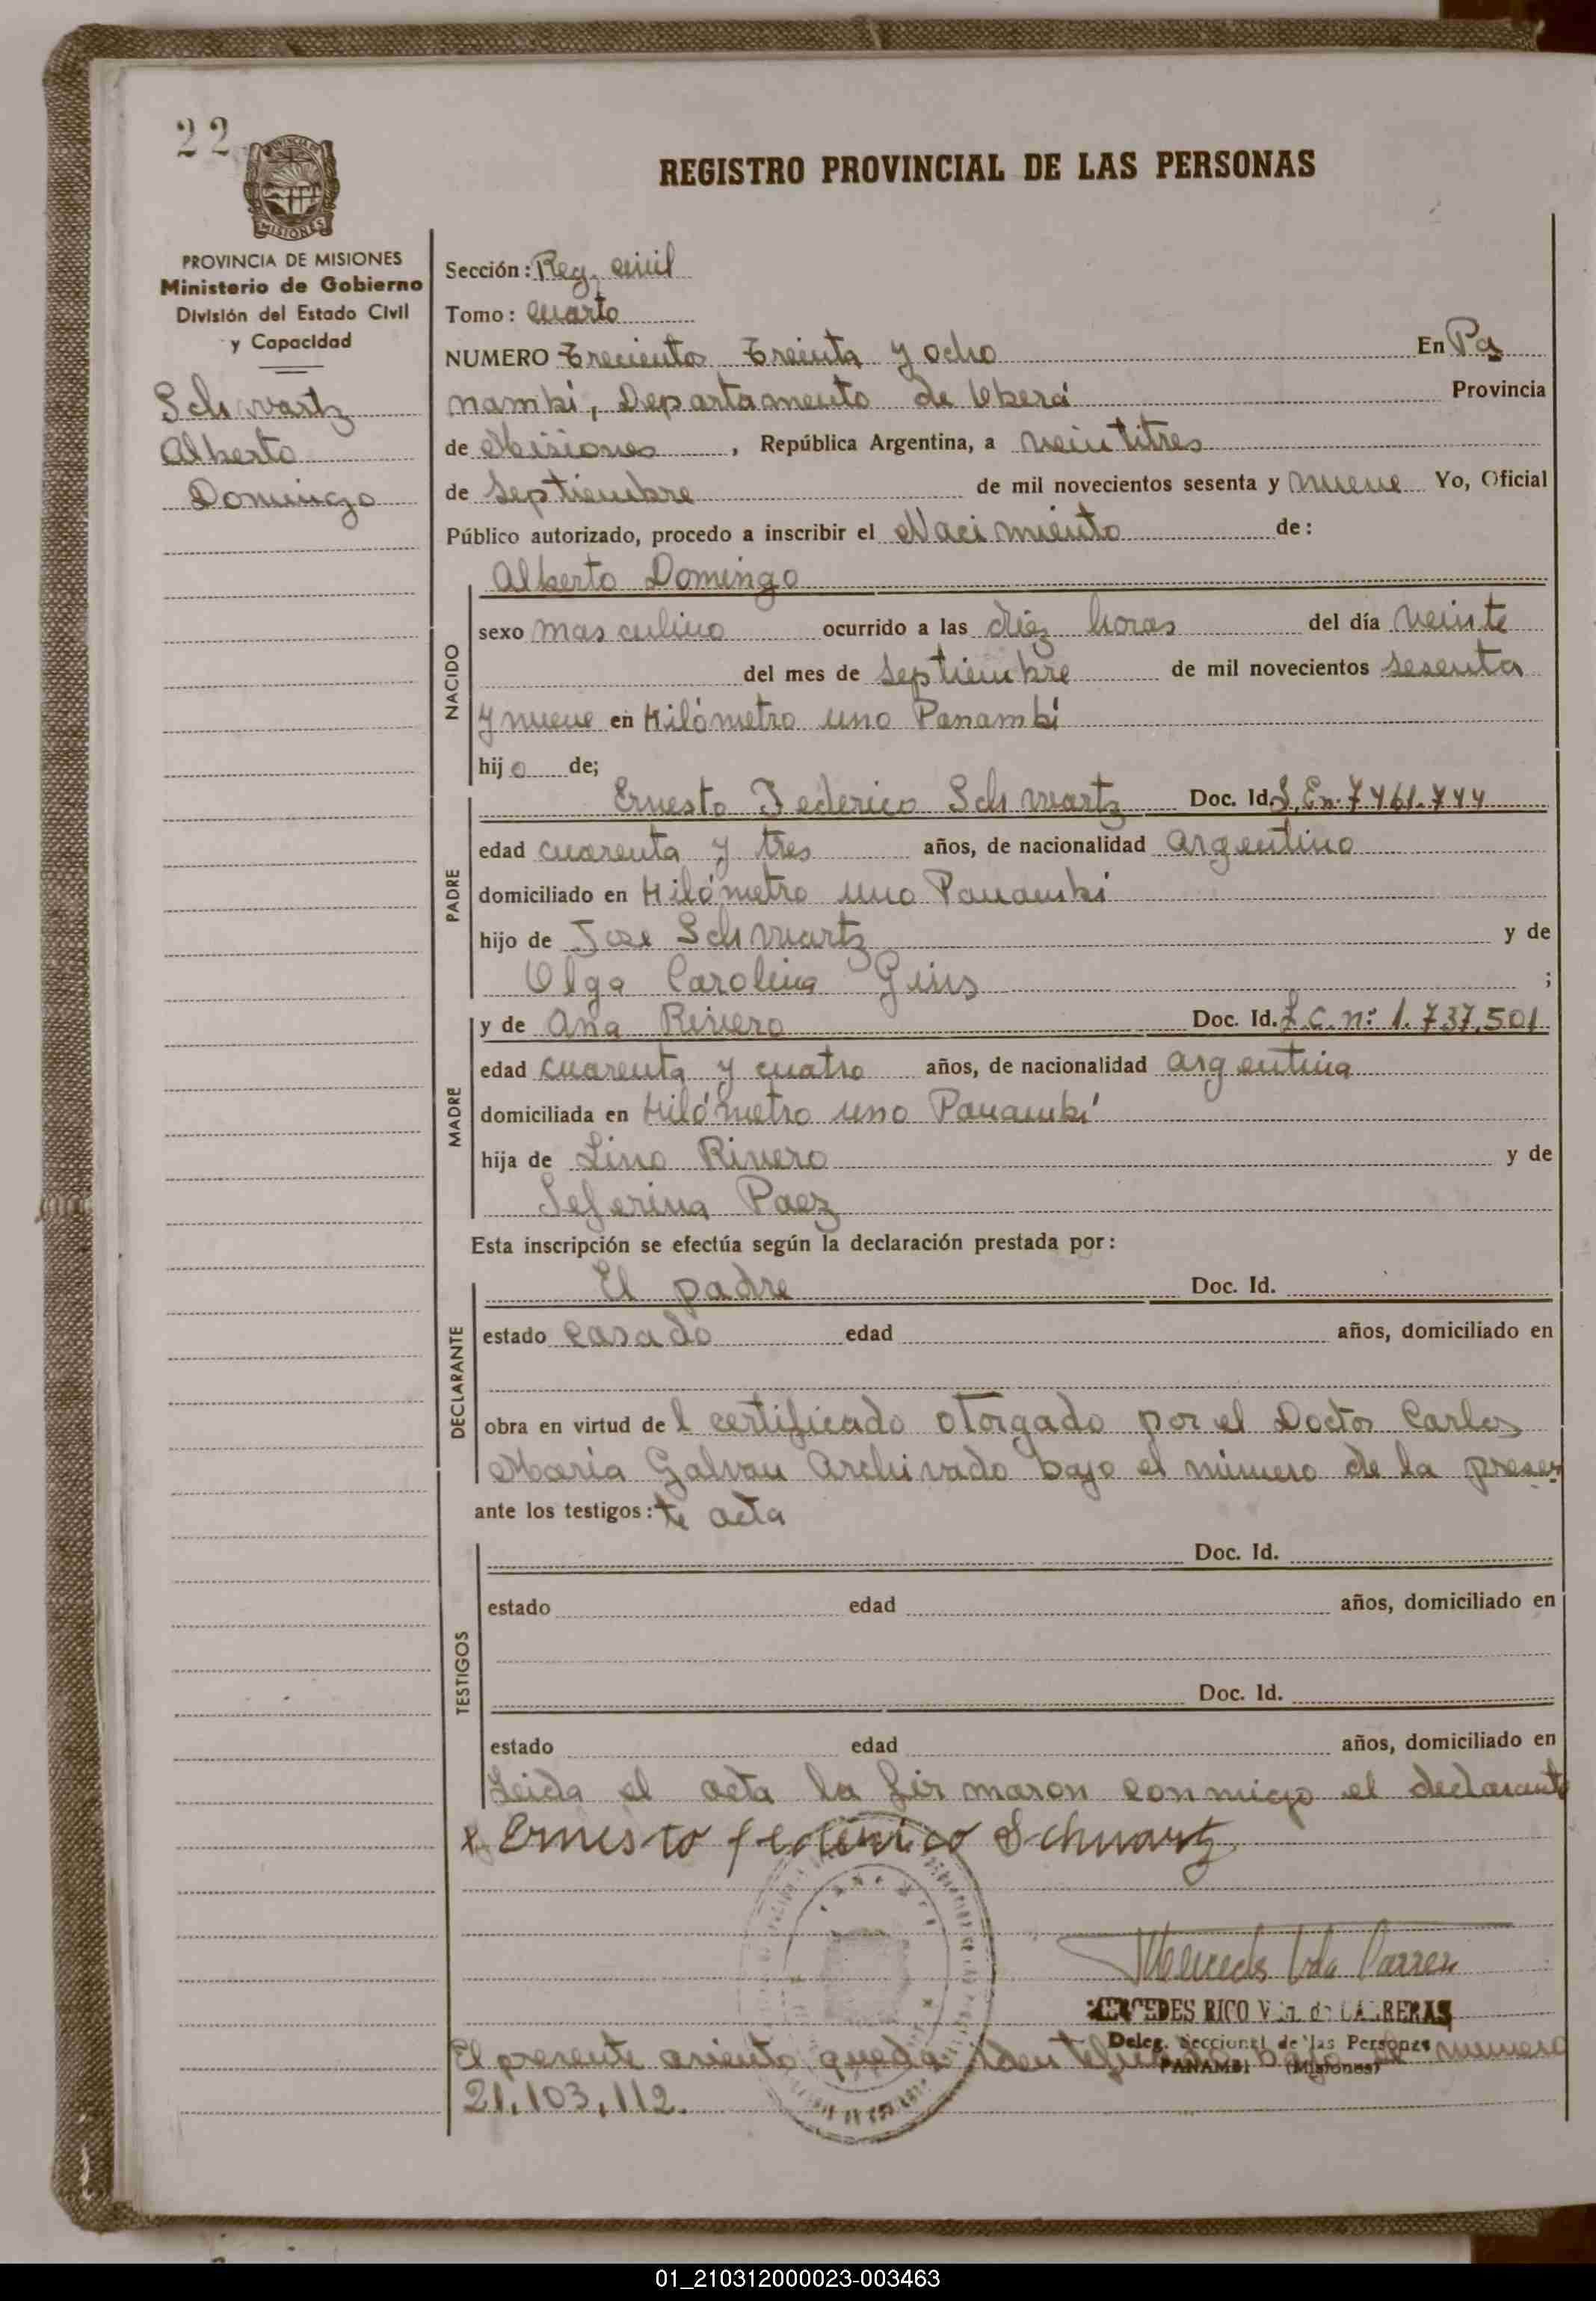 22
PROVINCIA DE MISIONES
Ministerio de Gobierno
División del Estado Civil
y Capacidad
Schwartz
Alberto
Domingo
REGISTRO PROVINCIAL DE LAS PERSONAS
Sección: Reg. civil
Tomo: Cuarto
NUMERO Trecientos Treinta y ocho En Pa
nambí, Departamento de Oberá Provincia
de Misiones, República Argentina, a veintitres
de Septiembre de mil novecientos sesenta y nueve Yo, Oficial
Público autorizado, procedo a inscribir el Nacimiento de:
NACIDO
Alberto Domingo
sexo masculino ocurrido a las diez horas del día veinte
del mes de Septiembre de mil novecientos sesenta
y nueve en Kilómetro uno Panambí
hijo de;
PADRE
Ernesto Federico Schwartz Doc. Id. L.En. 7461.744
edad cuarenta y tres años, de nacionalidad argentino
domiciliado en Kilómetro uno Panambí
hijo de Jose Schwartz y de
Olga Carolina Gins ;
MADRE
y de Ana Rivero Doc. Id. L.C. nº 1.737,501
edad cuarenta y cuatro años, de nacionalidad argentina
domiciliada en Kilómetro uno Panambí
hija de Lino Rivero y de
Seferina Paez
Esta inscripción se efectúa según la declaración prestada por:
DECLARANTE
El padre Doc. Id.
estado casado edad años, domiciliado en
obra en virtud de l certificado otorgado por el Doctor Carlos
María Galvan Archivado bajo el número de la presen
ante los testigos: te acta
TESTIGOS
Doc. Id.
estado edad años, domiciliado en
Doc. Id.
estado edad años, domiciliado en
Leida el acta la firmaron conmigo el declarante
x Ernesto federico Schwartz
MERCEDES RICO V de CABRERAS
Deleg. Seccional de las Personas
PANAMBI (Misiones)
El presente asiento queda identificado bajo el numero
21,103,112.
01_210312000023-003463